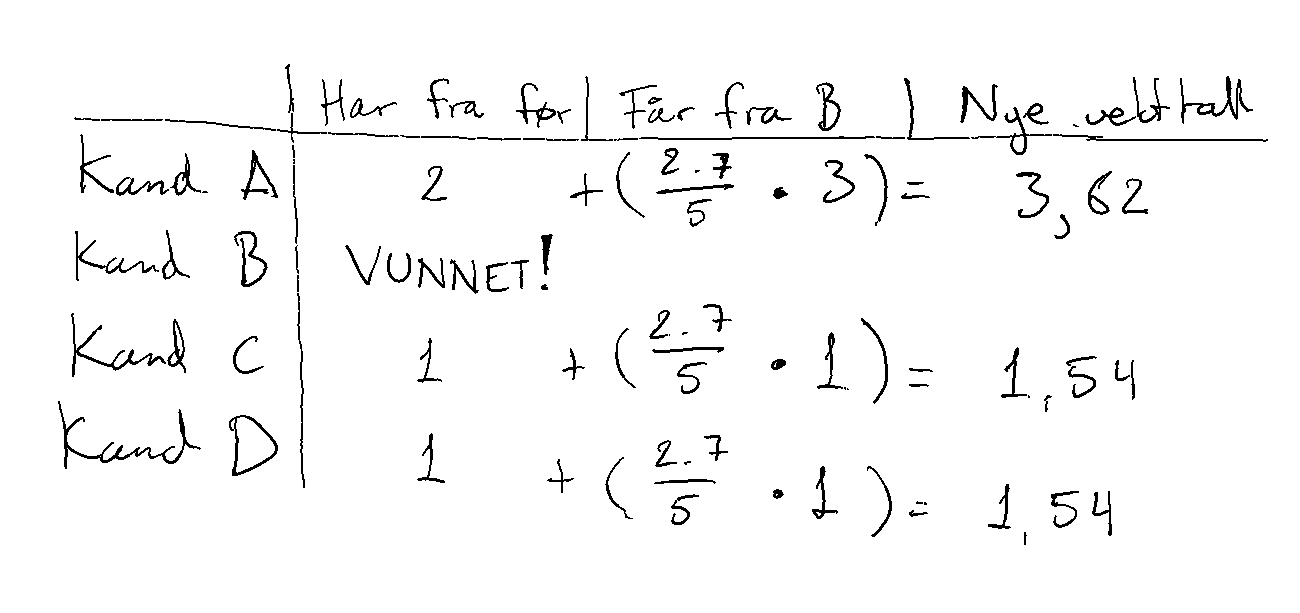 Har fra før | Får fra B | Nye vekttall
Kand A 2 +(2.7/5 · 3)= 3,62
Kand B VUNNET!
Kand C 1 +(2.7/5 · 1)= 1,54
Kand D 1 +(2.7/5 · 1)= 1,54